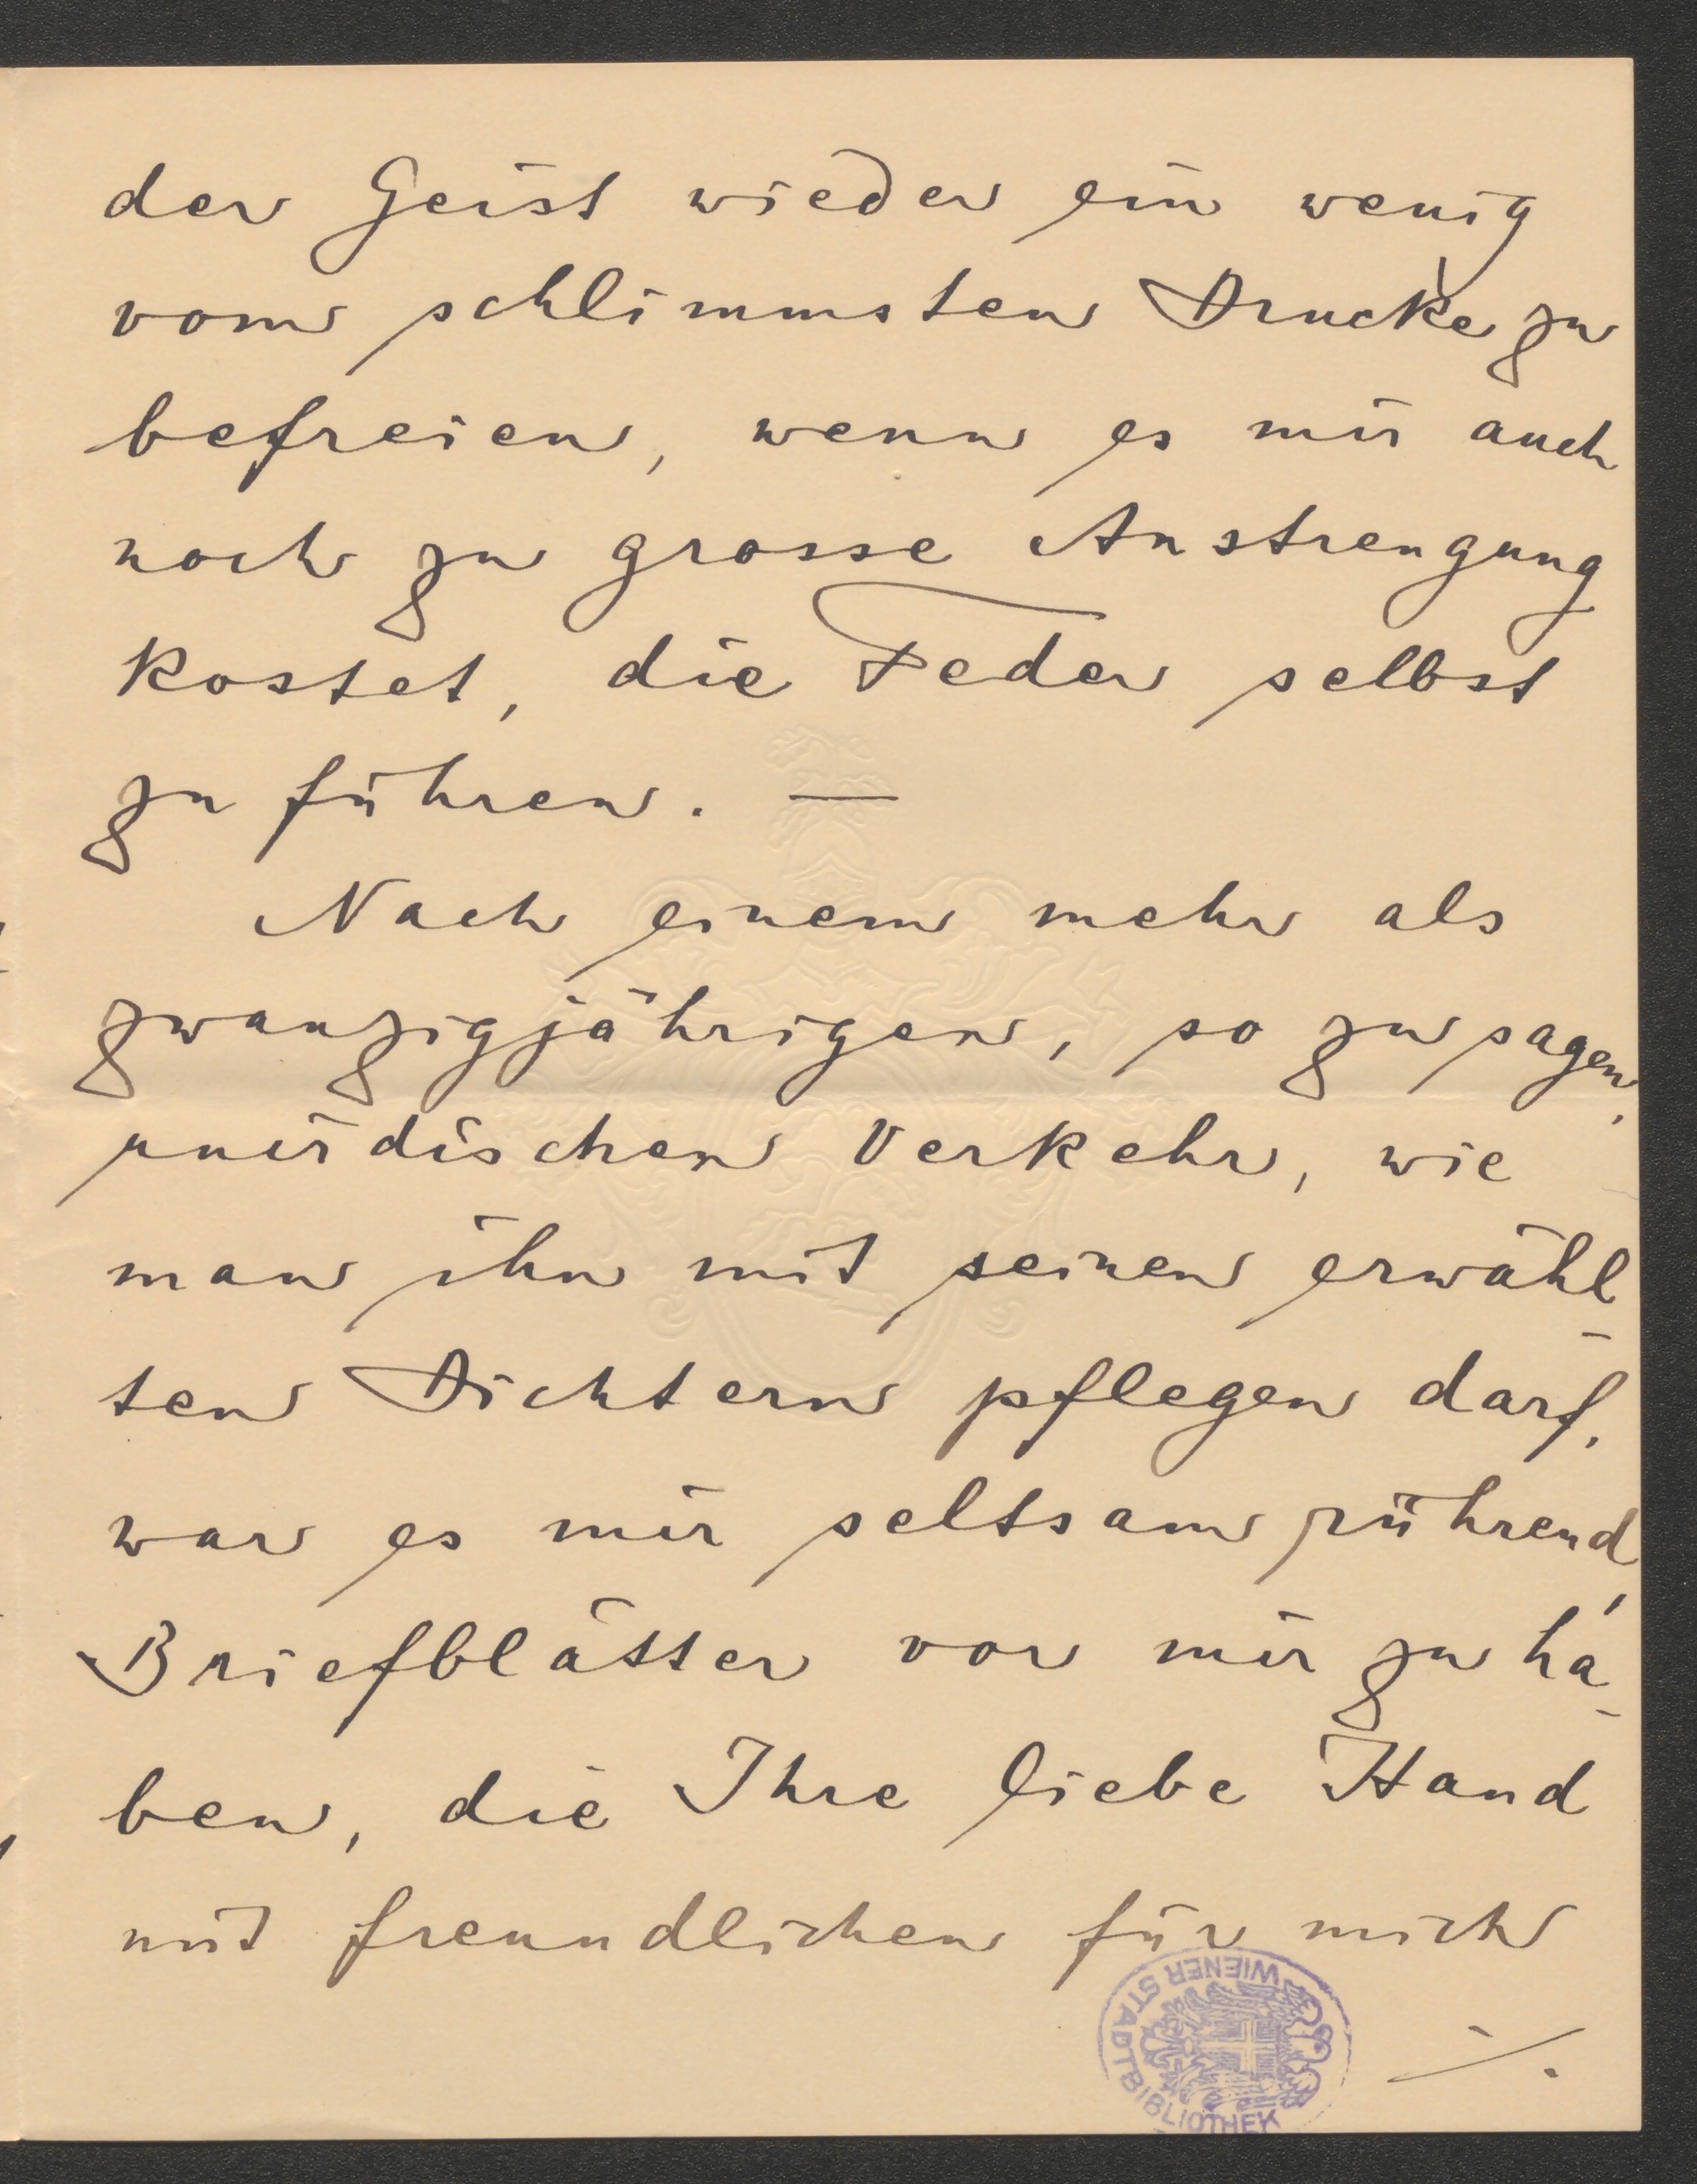 der Geist wieder ein wenig
vom schlimmsten Drucke zu
befreien, wenn es mir auch
noch zu grosse Anstrengung
kostet, die Feder selbst
zu führen. —
Nach einem mehr als
zwanzigjährigen, so zu sagen,
unirdischen Verkehr, wie
man ihn mit seinen erwähl-
ten Dichtern pflegen darf,
war es mir seltsam rührend,
Briefblätter vor mir zu ha-
ben, die Ihre liebe Hand
mit freundlichen für mich
./.
WIENER STADTBIBLIOTHEK